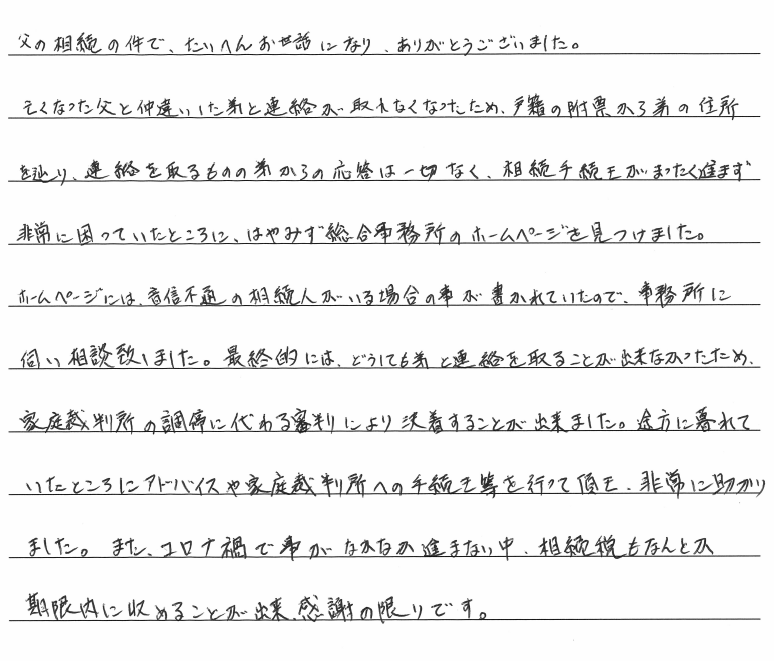 父の相続の件で、たいへんお世話になり、ありがとうございました。
亡くなった父と仲違いした弟と連絡が取れなくなったため、戸籍の附票から弟の住所
を辿り、連絡を取るものの弟からの応答は一切なく、相続手続きがまったく進まず
非常に困っていたところに、はやみず総合事務所のホームページを見つけました。
ホームページには、音信不通の相続人がいる場合の事が書かれていたので、事務所に
伺い相談致しました。最終的には、どうしても弟と連絡を取ることが出来なかったため、
家庭裁判所の調停に代わる審判により決着することが出来ました。途方に暮れて
いたところにアドバイスや家庭裁判所への手続き等を行って頂き、非常に助かり
ました。また、コロナ禍で事がなかなか進まない中、相続税もなんとか
期限内に収めることが出来、感謝の限りです。